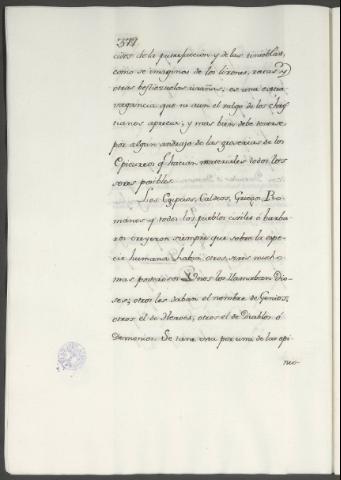 379
cidos de la putrefaccion y de las tinieblas,
como se imaginan de los lirones, ratas, y
otras bestezuelas
vagancia que ni aun el vulgo de los chris
tianos aprecia; y mas bien debe tenerse
por algun andrajo de las groserias de los
Epicureos q.e hacian materiales todos los
seres posibles.
Los Egipcios, Caldeos, Griegos, Ro
manos y todos los pueblos civiles ó barba
ros creyeron siempre que sobre la espe
cie humana habia otros seres mucho
mas poderosos. Unos los llamaban Dio
ses; otros les daban el nombre de Genios;
otros el de Heroes; otros el de Diablos ó
Demonios. Se tiene una por una de las opi
nio-